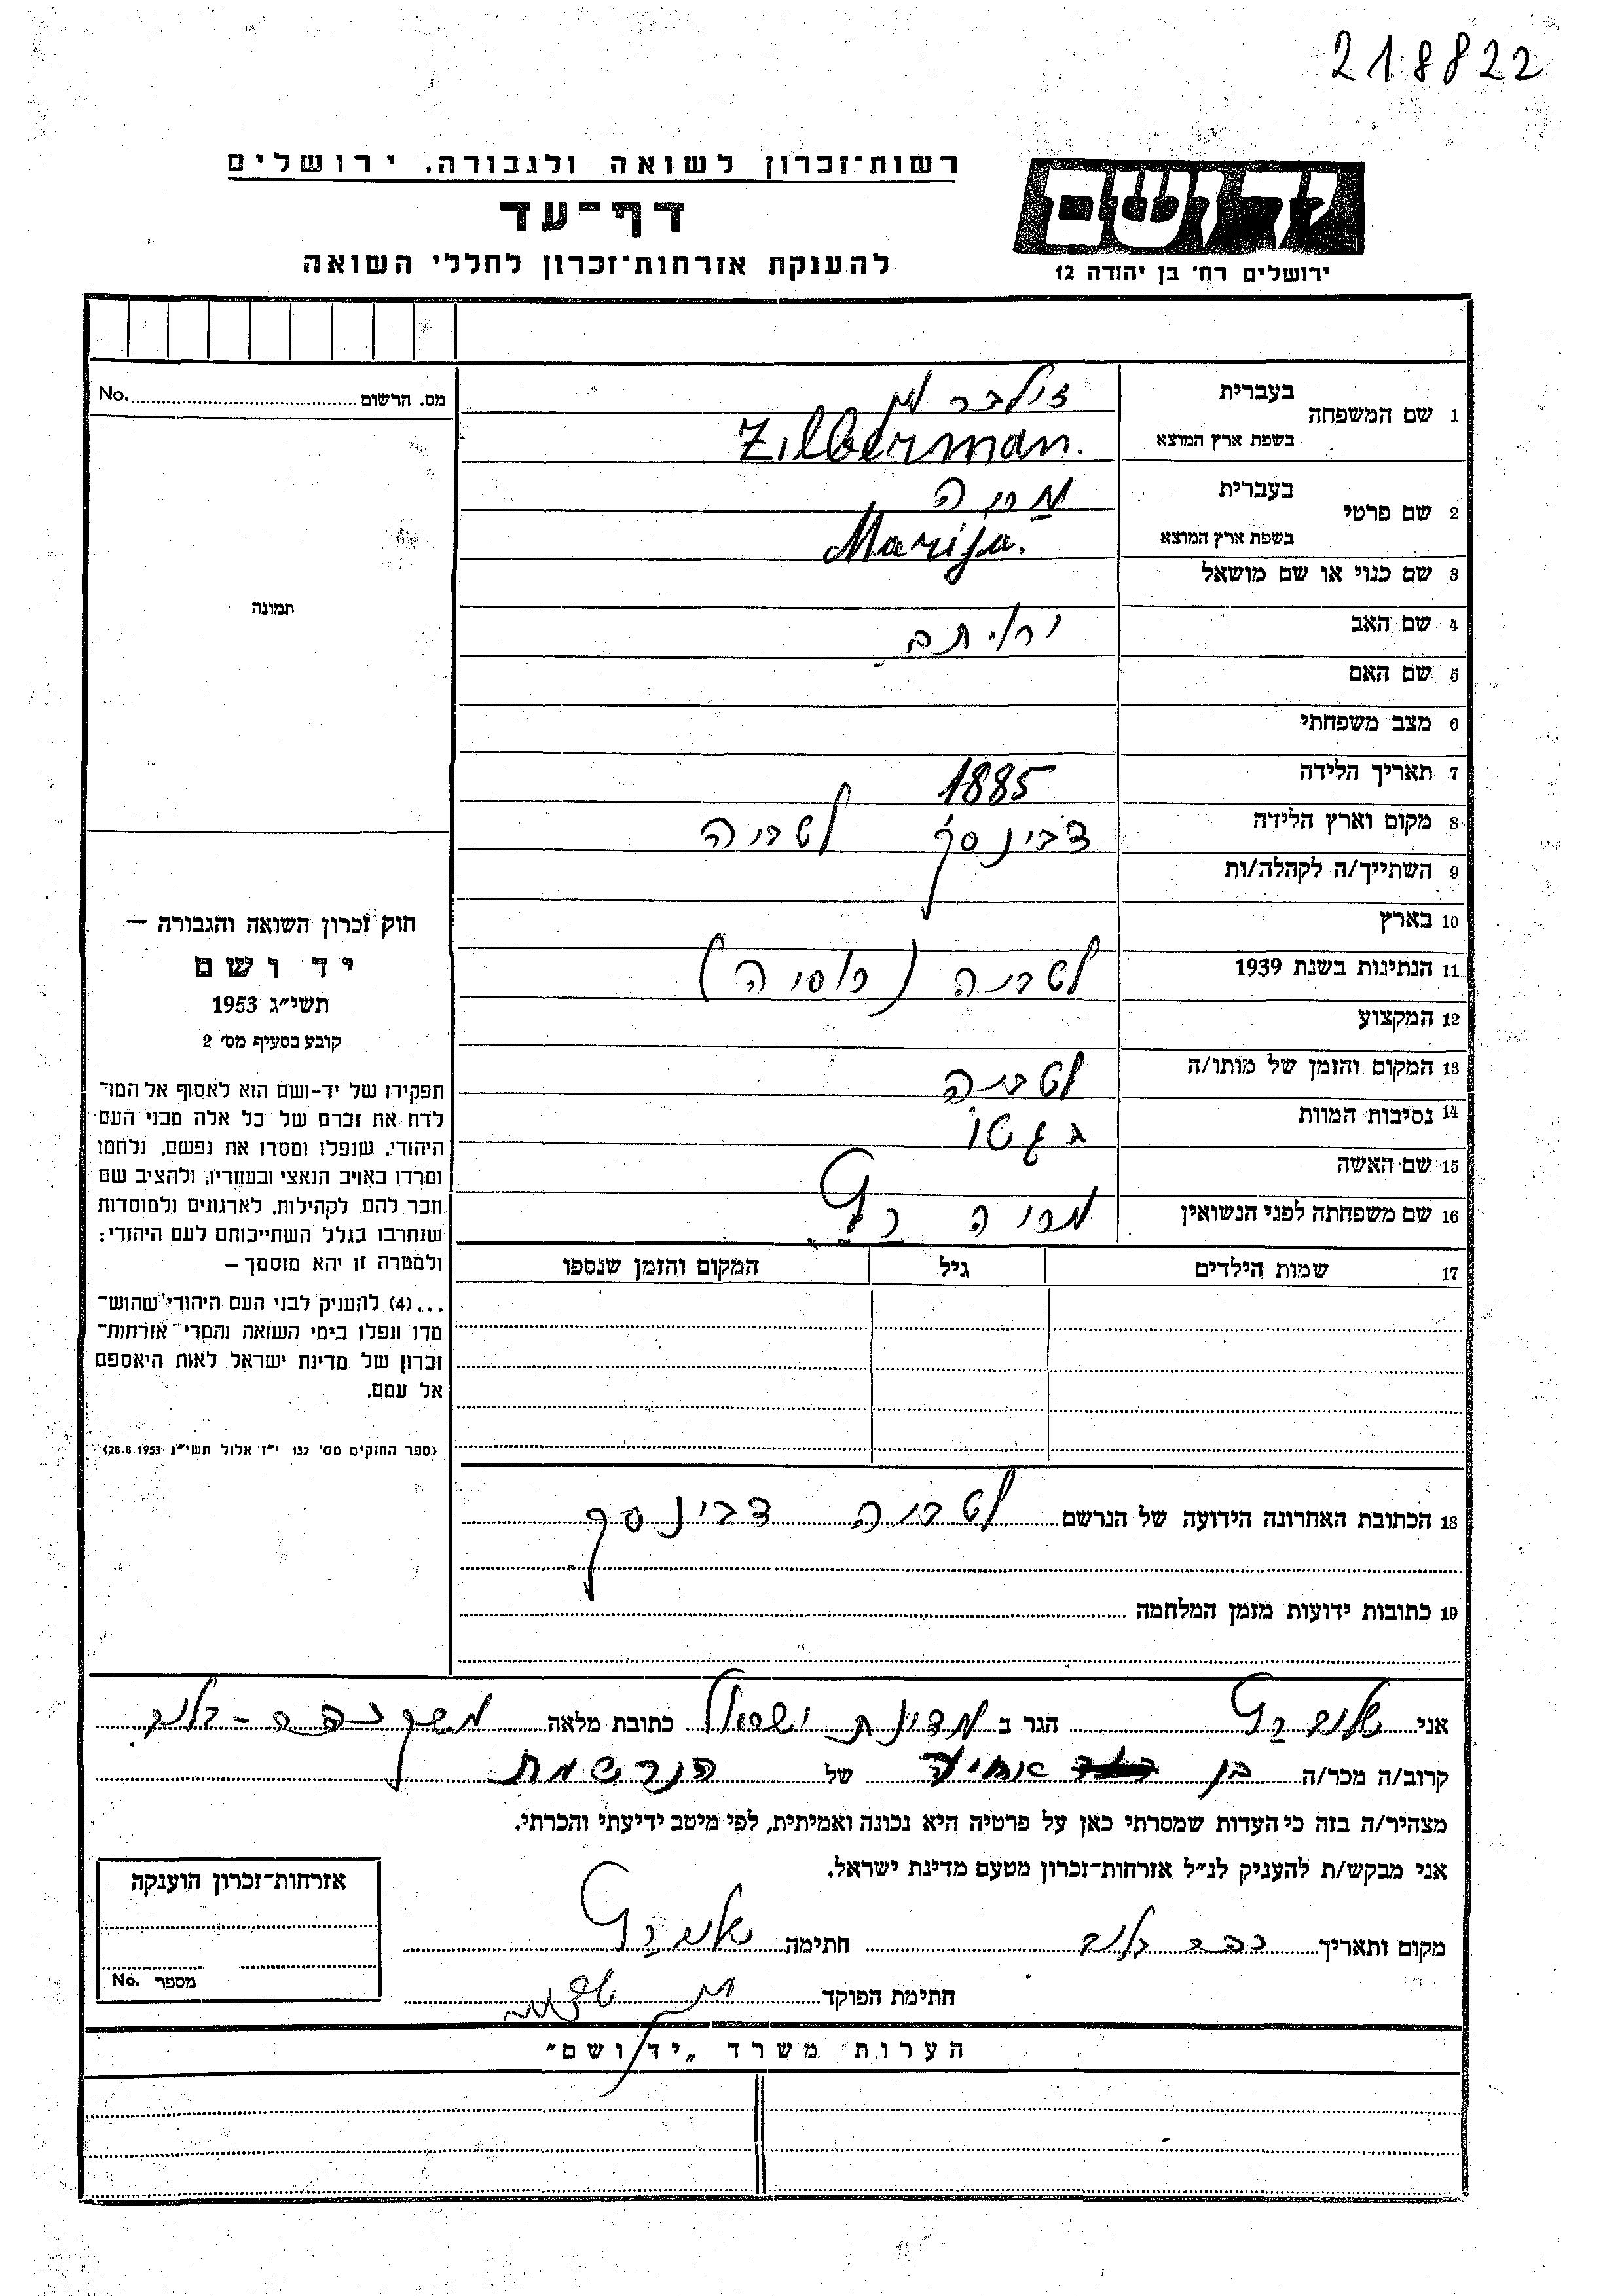 218822
רשות־זכרון לשואה ולגבורה, ירושלים
דף־עד
להענקת אזרחות־זכרון לחללי השואה
יד ושם
ירושלים רח׳ בן יהודה 12
מס. הרשום No.
תמונה
חוק זכרון השואה והגבורה –
יד ושם
תשי״ג 1953
קובע בסעיף מס׳ 2
תפקידו של יד-ושם הוא לאסוף אל המו־
לדת את זכרם של כל אלה מבני העם
היהודי, שנפלו ומסרו את נפשם, נלחמו
ומרדו באויב הנאצי ובעוזריו, ולהציב שם
וזכר להם לקהילות, לארגונים ולמוסדות
שנחרבו בגלל השתייכותם לעם היהודי;
ולמטרה זו יהא מוסמך –
...(4) להעניק לבני העם היהודי שהוש־
מדו ונפלו בימי השואה והמרי אזרחות־
זכרון של מדינת ישראל לאות היאספם
אל עמם.
(ספר החוקים מס׳ 132 י״ז אלול תשי״ג 28.8.1953)
1 שם המשפחה בעברית זילברמן
בשפת ארץ המוצא Zilberman.
2 שם פרטי בעברית מריה
בשפת ארץ המוצא Marija.
3 שם כנוי או שם מושאל
4 שם האב
5 שם האם
6 מצב משפחתי
7 תאריך הלידה 1885
8 מקום וארץ הלידה דבינסק לטביה
9 השתייך/ה לקהלה/ות
10 בארץ
11 הנתינות בשנת 1939 לטביה (רוסיה)
12 המקצוע
13 המקום והזמן של מותו/ה לטביה
14 נסיבות המוות בגטו
15 שם האשה
16 שם משפחתה לפני הנשואין מריה כץ
17 שמות הילדים גיל המקום והזמן שנספו
18 הכתובת האחרונה הידועה של הנרשם לטביה דבינסק
19 כתובות ידועות מזמן המלחמה
אני כץ הגר ב מדינת ישראל כתובת מלאה משק
קרוב/ה מכר/ה בן אחיה של הנרשמת
מצהיר/ה בזה כי העדות שמסרתי כאן על פרטיה היא נכונה ואמיתית, לפי מיטב ידיעתי והכרתי.
אני מבקש/ת להעניק לנ״ל אזרחות־זכרון מטעם מדינת ישראל.
מקום ותאריך חתימה כץ
חתימת הפוקד
אזרחות־זכרון הוענקה
מספר No.
הערות משרד „יד ושם״